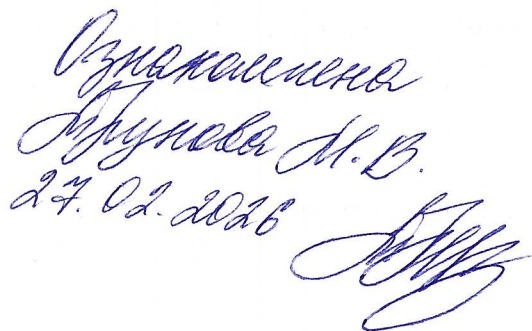 Ознакомлена
Трунова М.В.
27.02.2026